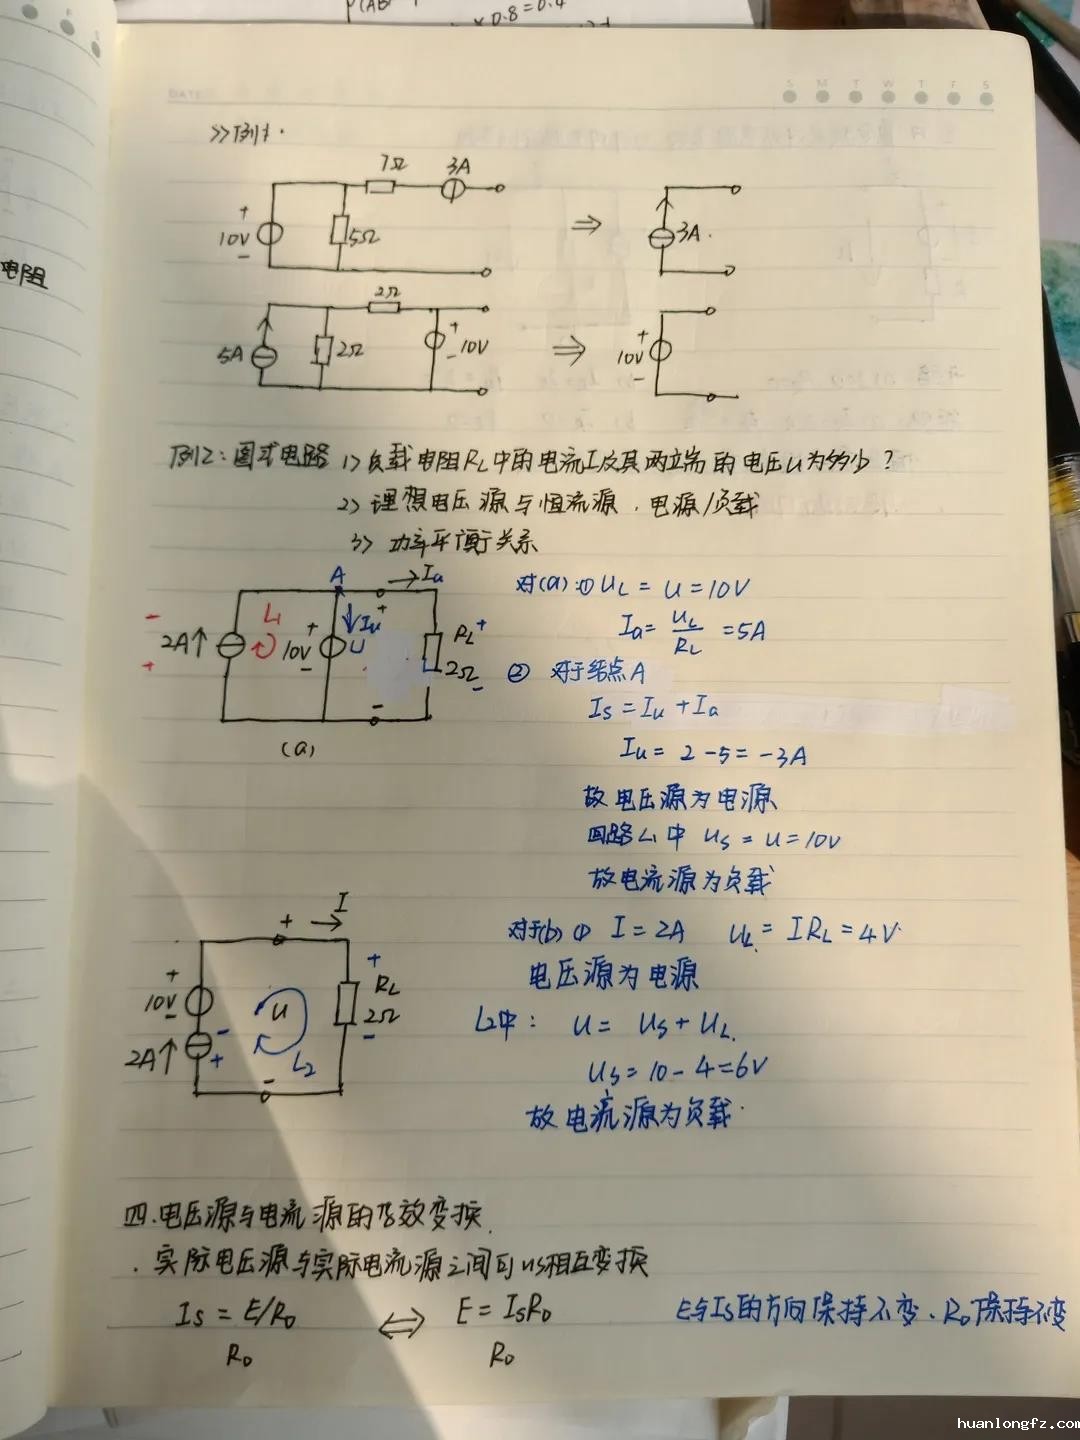 P(AB
× 0.8 = 0.4
DATE
S M T W T F S
电阻
>>例1.
7Ω 3A
+ 10V - 5Ω ⇒ 3A.
2Ω
5A 2Ω + - 10V ⇒ + 10V -
例2: 图式电路 1> 负载电阻RL中的电流I及其两端的电压U为多少?
2> 理想电压源与恒流源.电源/负载
3> 功率平衡关系
A → Ia
- 2A↑ + L1 + 10V - U ↓Iu + - RL + 2Ω -
(a)
对(a): ① UL = U = 10V
Ia = UL/RL = 5A
② 对于结点A
Is = Iu + Ia
Iu = 2 - 5 = -3A
故电压源为电源
回路L1中 Us = U = 10V
故电流源为负载
+ → I
+ 10V - 2A↑ - + U L2 - + RL 2Ω -
对于(b) ① I = 2A UL = IRL = 4V.
电压源为电源
L2中: U = Us + UL.
Us = 10 - 4 = 6V
故电流源为负载.
四.电压源与电流源的等效变换.
.实际电压源与实际电流源之间可以相互变换
Is = E/R0 ⇔ E = IsR0
R0 R0
E与Is的方向保持不变.R0保持不变
huanlongfz.com